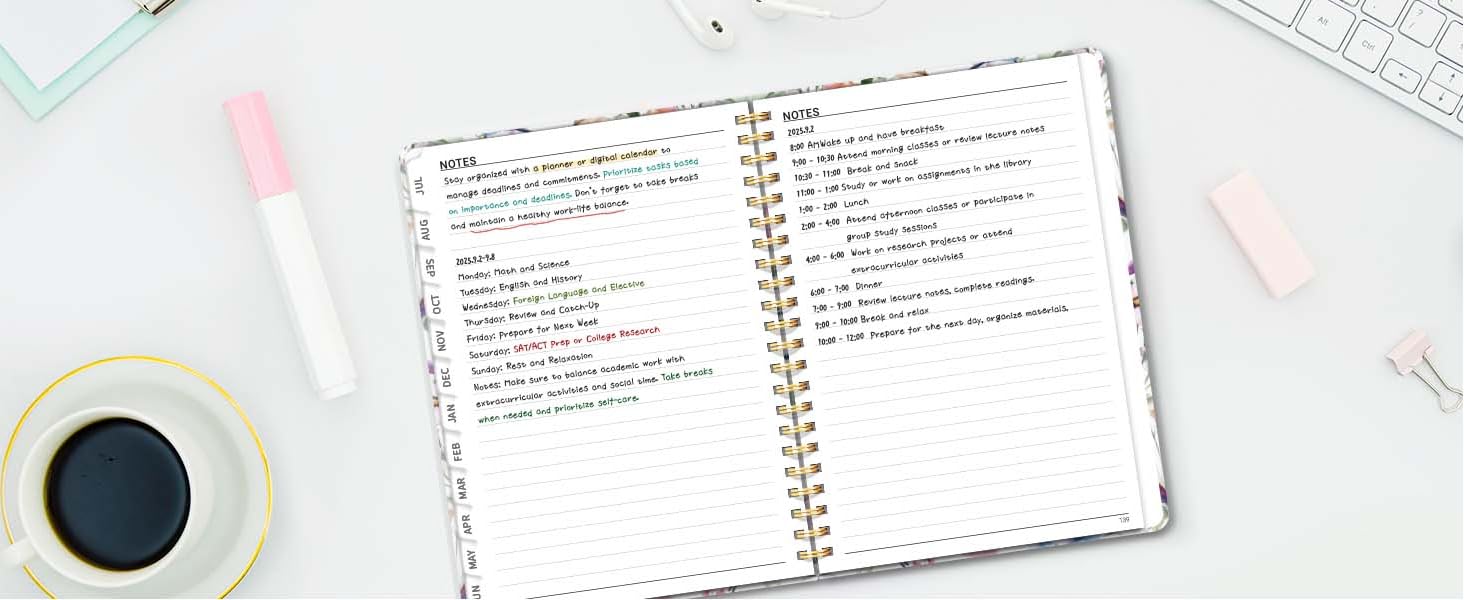 NOTES
Stay organized with a planner or digital calendar to
manage deadlines and commitments. Prioritize tasks based
on importance and deadlines. Don't forget to take breaks
and maintain a healthy work-life balance.
2025.9.2-9.8
Monday: Math and Science
Tuesday: English and History
Wednesday: Foreign Language and Elective
Thursday: Review and Catch-Up
Friday: Prepare for Next Week
Saturday: SAT/ACT Prep or College Research
Sunday: Rest and Relaxation
Notes: Make sure to balance academic work with
extracurricular activities and social time. Take breaks
when needed and prioritize self-care.
JUL
AUG
SEP
OCT
NOV
DEC
JAN
FEB
MAR
APR
MAY
UN
NOTES
2025.9.2
8:00 AM Wake up and have breakfast
9:00 - 10:30 Attend morning classes or review lecture notes
10:30 - 11:00 Break and snack
11:00 - 1:00 Study or work on assignments in the library
1:00 - 2:00 Lunch
2:00 - 4:00 Attend afternoon classes or participate in
group study sessions
4:00 - 6:00 Work on research projects or attend
extracurricular activities
6:00 - 7:00 Dinner
7:00 - 9:00 Review lecture notes, complete readings.
9:00 - 10:00 Break and relax
10:00 - 12:00 Prepare for the next day, organize materials.
139
Alt
Ctrl
?
/